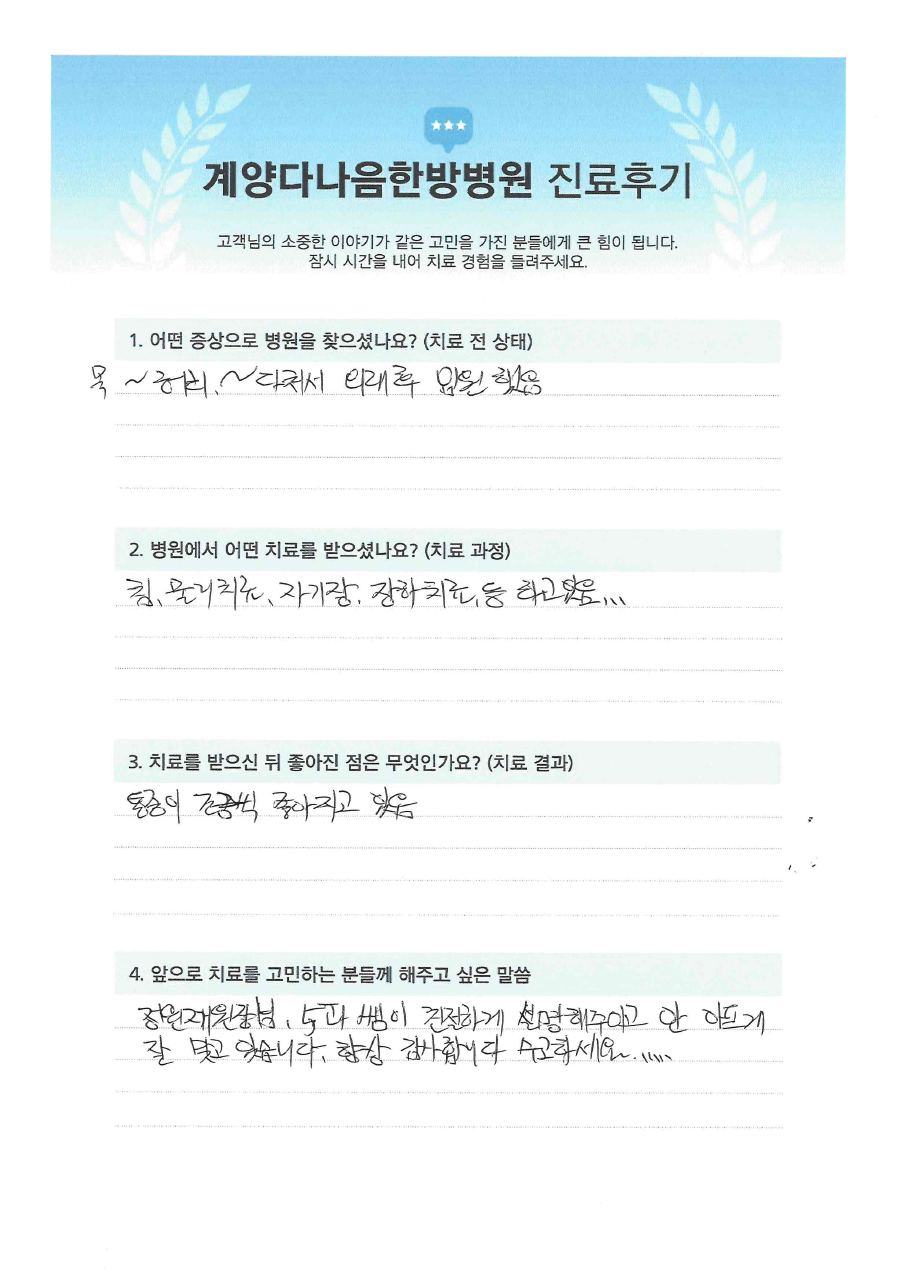 계양다나음한방병원 진료후기
고객님의 소중한 이야기가 같은 고민을 가진 분들에게 큰 힘이 됩니다.
잠시 시간을 내어 치료 경험을 들려주세요.
1. 어떤 증상으로 병원을 찾으셨나요? (치료 전 상태)
목 ~ 허리, ~ 다쳐서 외래후 입원 했음
2. 병원에서 어떤 치료를 받으셨나요? (치료 과정)
침, 물리치료, 자기장, 치료, 등 하고있음...
3. 치료를 받으신 뒤 좋아진 점은 무엇인가요? (치료 결과)
통증이 조금씩 좋아지고 있음
4. 앞으로 치료를 고민하는 분들께 해주고 싶은 말씀
장원재원장님, 5과 쌤이 친절하게 설명해주이고 안 아프게
잘 맞고 있습니다, 항상 감사합니다 수고하세요.,,,,,